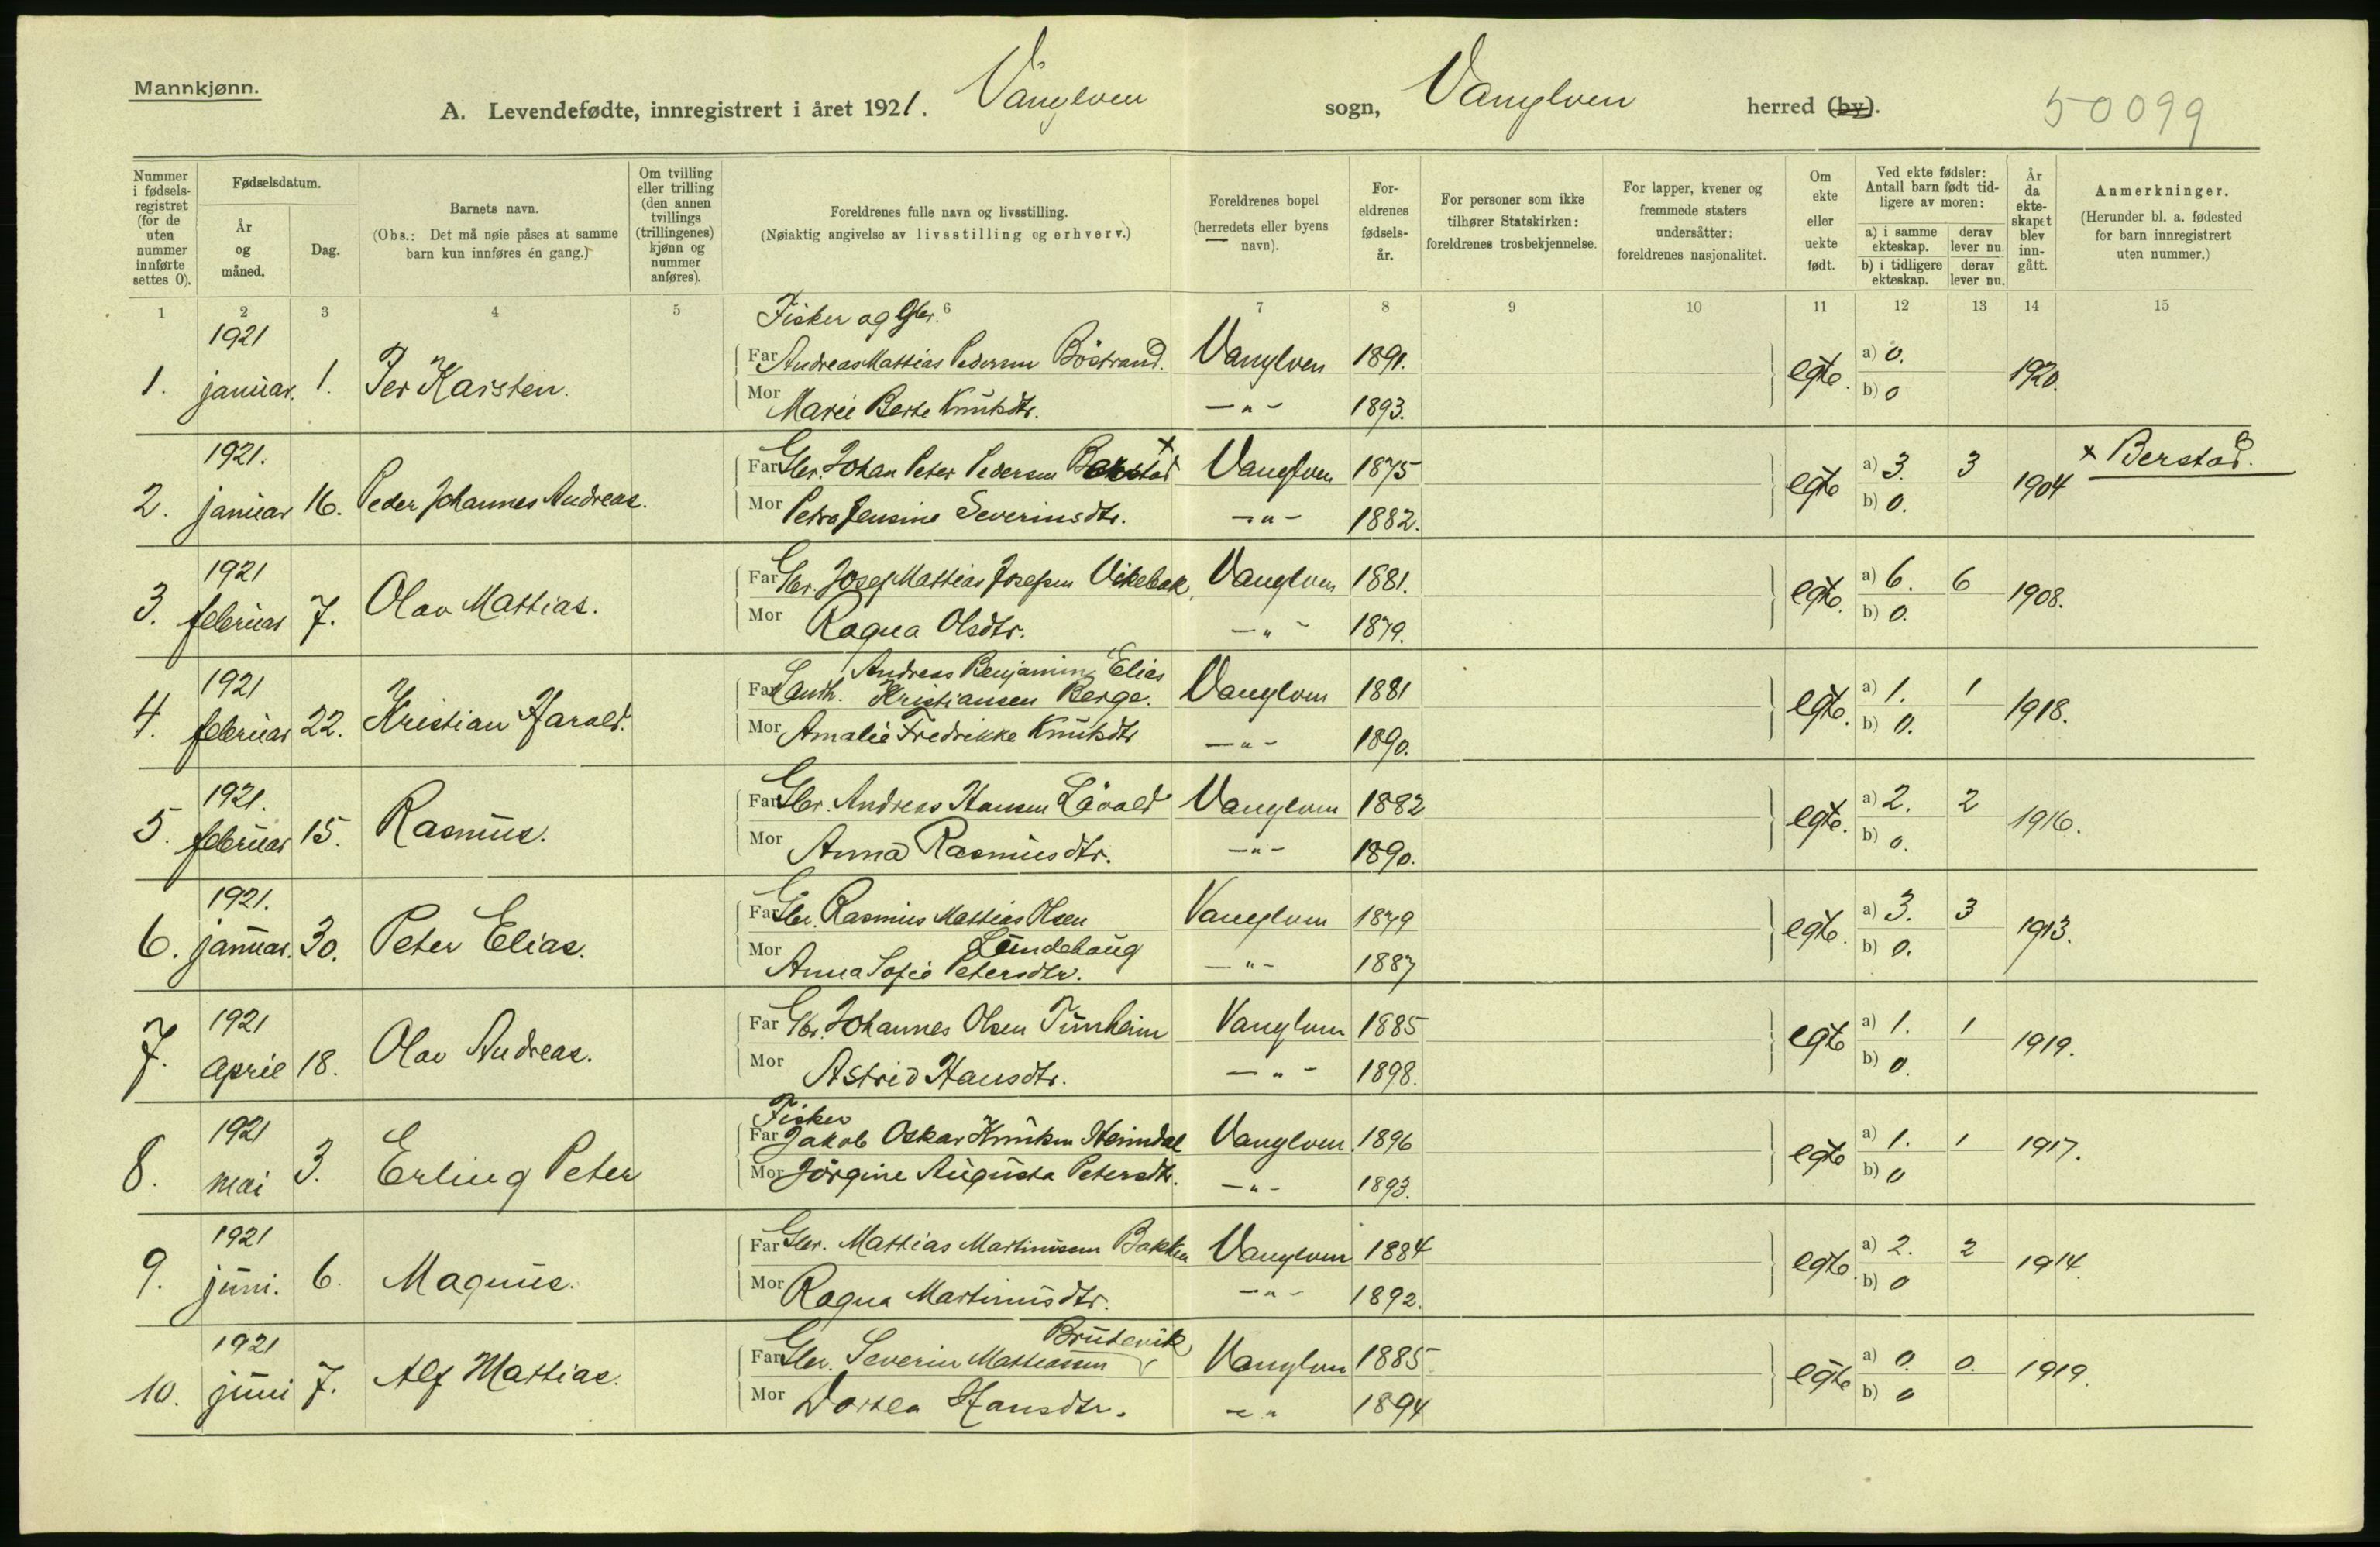 Mannkjønn.
A. Levendefødte, innregistrert i året 1921. Vanylven sogn, Vanylven herred (by). 50099
Nummer i fødsels-registret (for de uten nummer innførte settes 0).
Fødselsdatum.
År og måned.
Dag.
Barnets navn.
(Obs.: Det må nøie påses at samme barn kun innføres én gang.)
Om tvilling eller trilling (den annen tvillings (trillingenes) kjønn og nummer anføres).
Foreldrenes fulle navn og livsstilling.
(Nøiaktig angivelse av livsstilling og erhverv.)
Foreldrenes bopel (herredets eller byens navn).
For-eldrenes fødsels-år.
For personer som ikke tilhører Statskirken: foreldrenes trosbekjennelse.
For lapper, kvener og fremmede staters undersåtter: foreldrenes nasjonalitet.
Om ekte eller uekte født.
Ved ekte fødsler: Antall barn født tid-ligere av moren:
a) i samme ekteskap. derav lever nu.
b) i tidligere ekteskap. derav lever nu.
År da ekte-skapet blev inn-gått.
Anmerkninger.
(Herunder bl. a. fødested for barn innregistrert uten nummer.)
1 2 3 4 5 6 7 8 9 10 11 12 13 14 15
1921 Fisker og Gbr.
Far Andreas Mattias Pedersen Böstrand. Vanylven 1891. a) 0.
1. januar. 1. Per Karsten. egte. 1920.
Mor Marie Berte Knutsdtr. —"— 1893. b) 0
1921. Far Gbr. Johan Peter Pedersen Berstad x Vanylven 1875 a) 3. 3 x Berstad.
2. januar 16. Peder Johannes Andreas. egte 1904
Mor Petra Jensine Severinsdtr. —"— 1882. b) 0.
1921 Far Gbr. Josef Mattias Josefsen Vikebak. Vanylven 1881. a) 6. 6
3. februar 7. Olav Mattias. egte. 1908.
Mor Ragna Olsdtr. —"— 1879. b) 0.
1921 Andreas Benjamin Elias
Far Landh. Kristiansen Berge. Vanylven 1881 a) 1. 1
4. februar 22. Kristian Harald. egte. 1918.
Mor Amalie Fredrikke Knutsdtr —"— 1890. b) 0.
1921. Far Gbr. Andreas Hansen Lövold Vanylven 1882 a) 2. 2
5. februar 15. Rasmus. egte. 1916.
Mor Anna Rasmusdtr. —"— 1890. b) 0.
1921. Far Gbr. Rasmus Mattias Olsen Vanylven 1879 a) 3. 3
Lundehaug
6. januar. 30. Peter Elias. egte. 1913.
Mor Anna Sofie Petersdtr. —"— 1887 b) 0.
1921 Far Gbr. Johannes Olsen Tunheim Vanylven 1885 a) 1. 1
7. april 18. Olav Andreas. egte 1919.
Mor Astrid Hansdtr. —"— 1898. b) 0.
1921 Fisker
Far Jakob Oskar Knutsen Heimdal Vanylven. 1896 a) 1. 1
8. mai 3. Erling Peter egte 1917.
Mor Jörgine Augusta Petersdtr. —"— 1893. b) 0
1921 Far Gbr. Mattias Martinussen Bakken Vanylven 1884 a) 2. 2
9. juni. 6. Magnus. egte. 1914.
Mor Ragna Martinusdtr. —"— 1892. b) 0
1921 Brudevik
Far Gbr. Severin Matteassen Vanylven 1885 a) 0. 0.
10. juni 7. Alf Mattias. egte 1919.
Mor Dortea Hansdtr. —"— 1894 b) 0